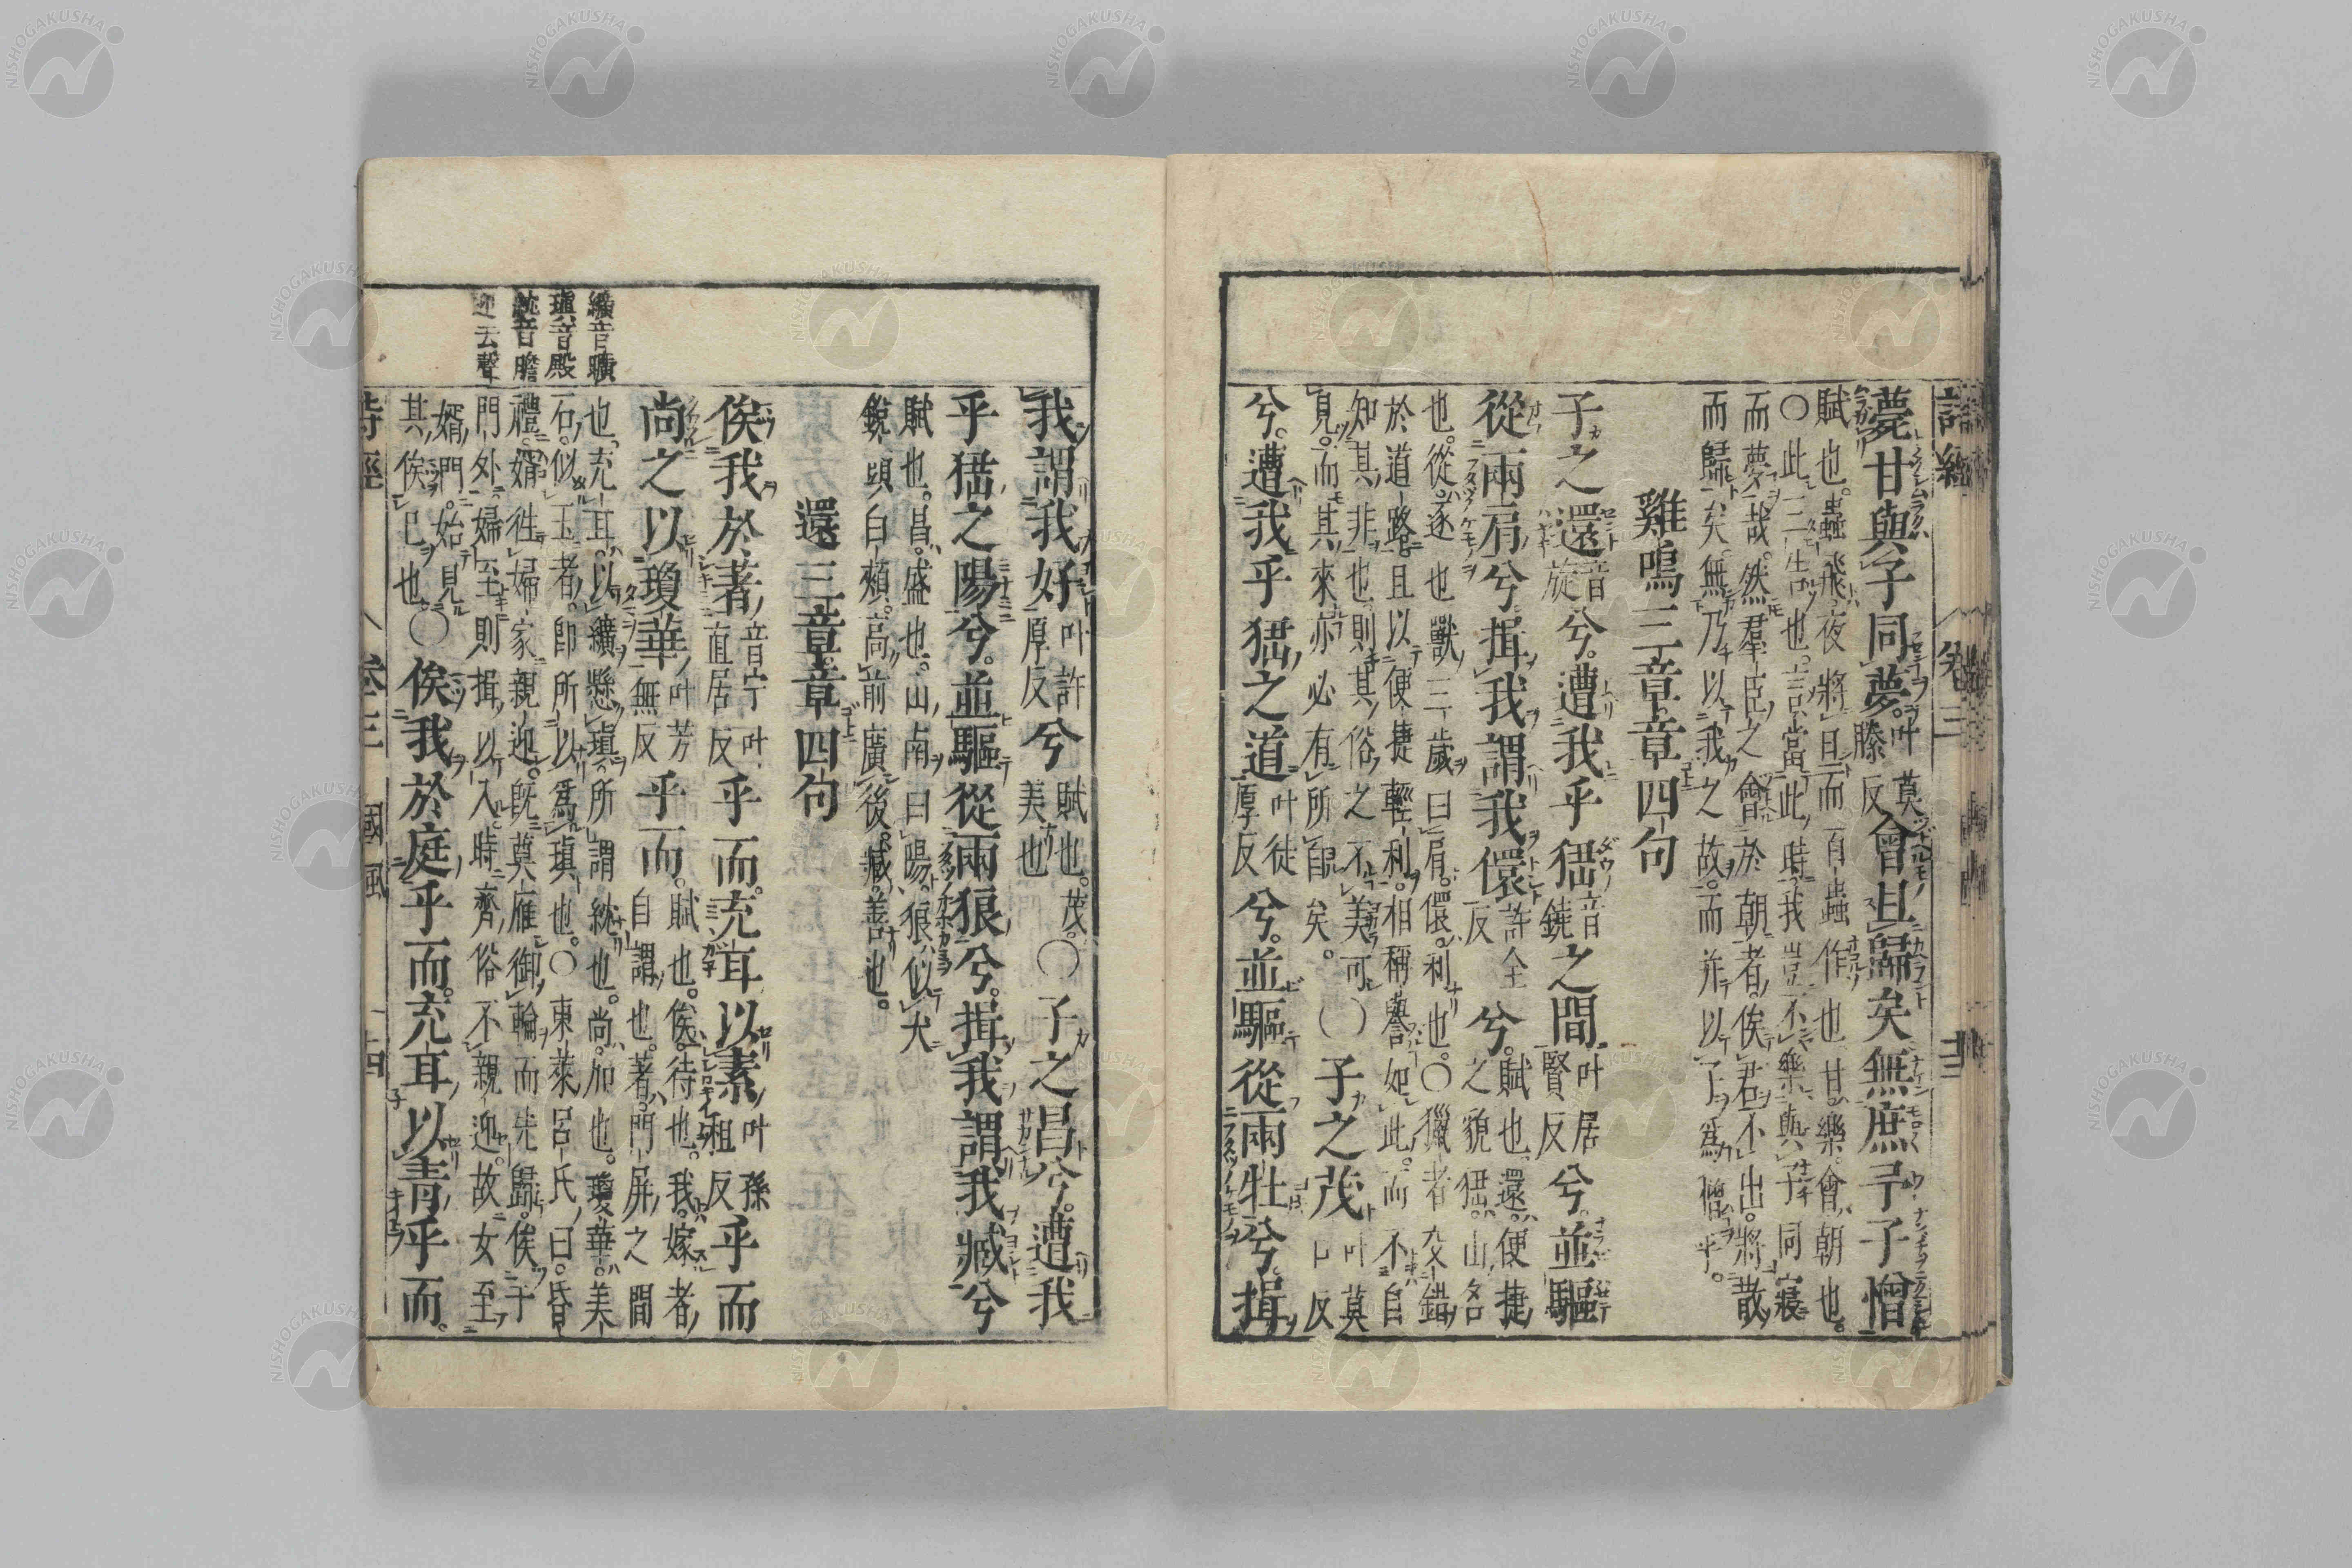 詩經 卷三
薨甘與子同夢叶莫滕反會且歸矣無庶予子憎
賦也。蟲飛、夜將旦而百蟲作也甘、樂。會、朝也。
○此三告也。言當此時、我豈不樂與子同寢
而夢哉。然羣臣之會於朝者、俟君不出。將散
而歸矣。無乃以我之故。而并以子爲憎乎。
雞鳴三章章四句
子之還音旋兮。遭我乎峱音鐃之間叶居賢反兮。並驅
從兩肩兮。揖我謂我儇許全反兮。賦也。還、便捷之貌。峱、山名
也。從、逐也。獸三歲曰肩。儇、利也。○獵者交錯
於道路。且以便捷輕利。相稱譽如此。而不自
知其非也。則其俗之不美可
見。而其來亦必有所自矣。○子之茂叶莫口反
兮。遭我乎峱之道叶徒厚反兮。並驅從兩牡兮。揖
我謂我好叶許厚反兮賦也。茂。美也○子之昌兮。遭我
乎峱之陽兮。並驅從兩狼兮。揖我謂我臧兮
賦也。昌、盛也。山南曰陽。狼、似犬
銳頭白頰。高前廣後。臧。善也。
還三章章四句
俟我於著音宁叶直居反乎而。充耳以素叶孫租反乎而
尚之以瓊華叶芳無反乎而。賦也。俟、待也。我、嫁者
自謂也。著。門屏之間
也。充耳。以纊懸瑱。所謂紞也。尚。加也。瓊華。美
石。似玉者。卽所以爲瑱也。○東萊呂氏曰。昏
禮。婿往婦家親迎。旣奠雁御輪而先歸。俟于
門外。婦至則揖以入。時齊俗不親迎。故女至
婿門。始見
其俟己也○俟我於庭乎而。充耳以靑乎而。
纊音曠
瑱音殿
紞音膽
迎去聲
詩經 卷三 國風 十四